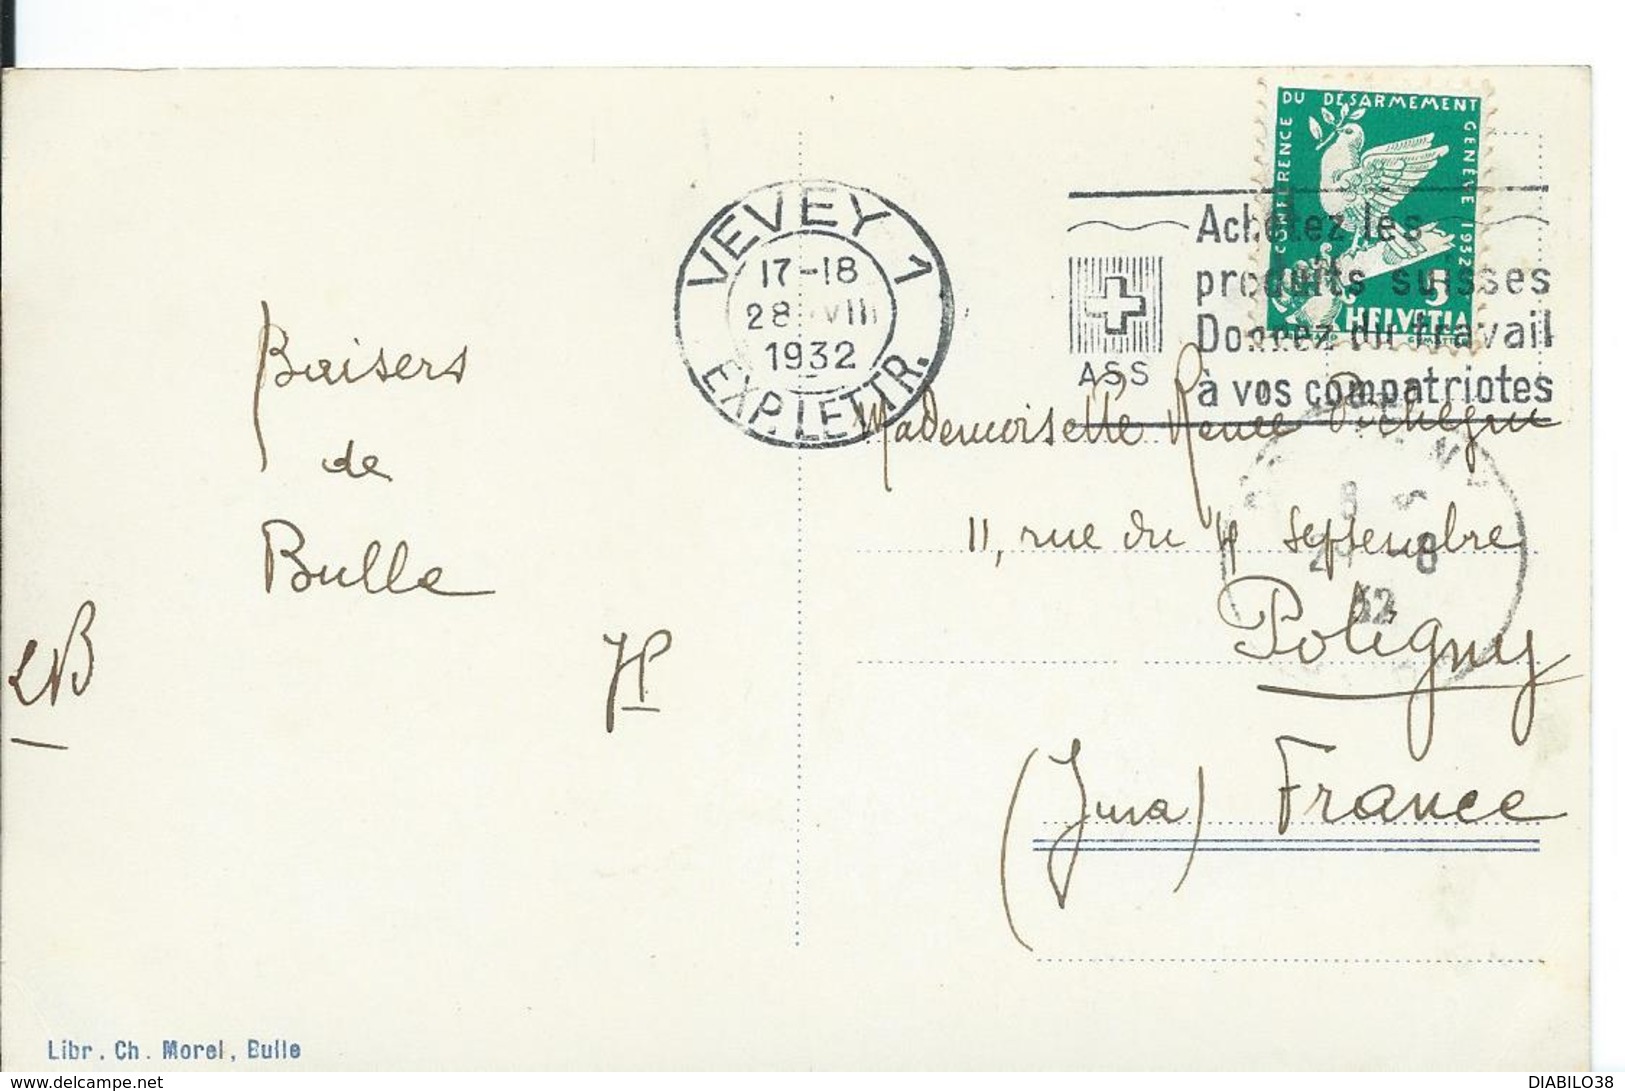 CONFERENCE DU DESARMEMENT GENEVE 1932
5
HELVETIA
VEVEY 1
17-18
28 VIII
1932
EXP. LETTR.
Achetez les
produits suisses
Donnez du travail
à vos compatriotes
ASS
Baisers
de
Bulle
LB
JP
Mademoiselle Renée Pichegru
11, rue du 4 septembre
Poligny
(Jura) France
8
-8
32
Libr. Ch. Morel, Bulle
delcampe.net
DIABILO38